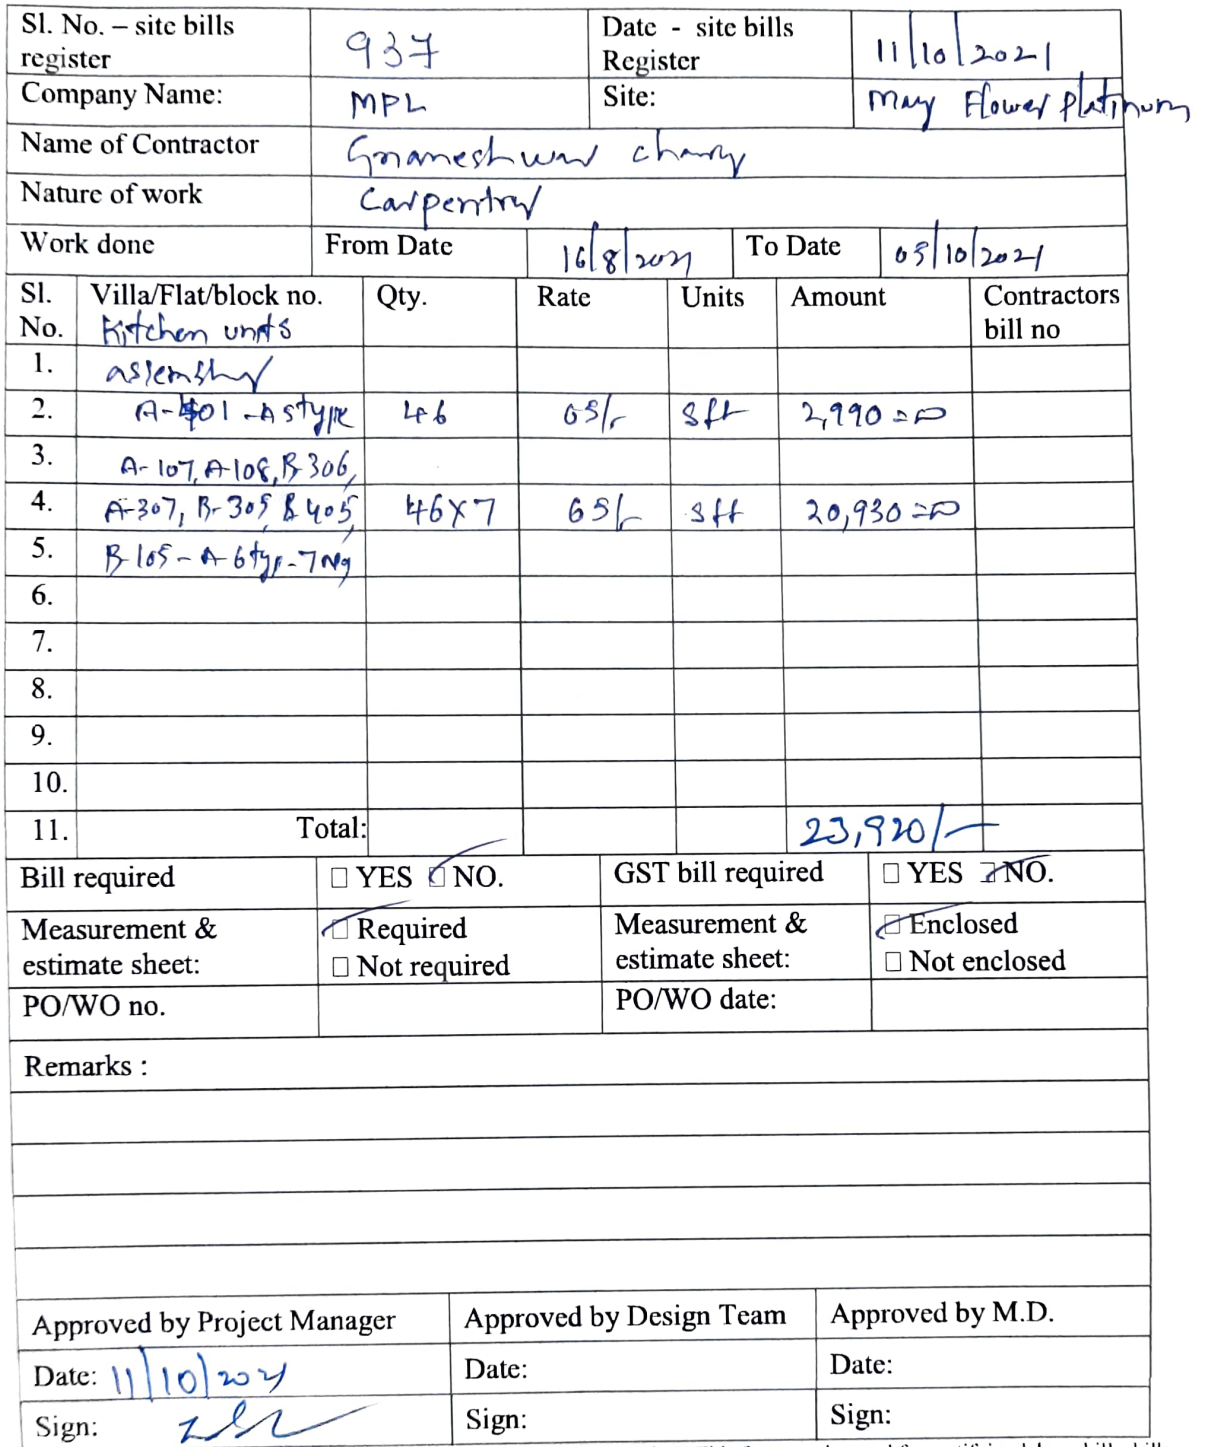 Sl. No. – site bills register 937 Date - site bills Register 11/10/2021
Company Name: MPL Site: May Flower Platinum
Name of Contractor Gnaneshwar chary
Nature of work Carpentry
Work done From Date 16/8/2021 To Date 05/10/2021
Sl. No. Villa/Flat/block no. Qty. Rate Units Amount Contractors bill no
Kitchen units
1. assembly
2. A-401 - A5type 46 65/- sft 2,990=00
3. A-107, A-108, B-306,
4. A-307, B-305, B405, 46X7 65/- sft 20,930=00
5. B-105 - A-6typ-7 no
6.
7.
8.
9.
10.
11. Total: 23,920/-
Bill required □ YES □ NO. GST bill required □ YES □ NO.
Measurement & estimate sheet: □ Required □ Not required Measurement & estimate sheet: □ Enclosed □ Not enclosed
PO/WO no. PO/WO date:
Remarks :
Approved by Project Manager Approved by Design Team Approved by M.D.
Date: 11/10/2021 Date: Date:
Sign: Sign: Sign: